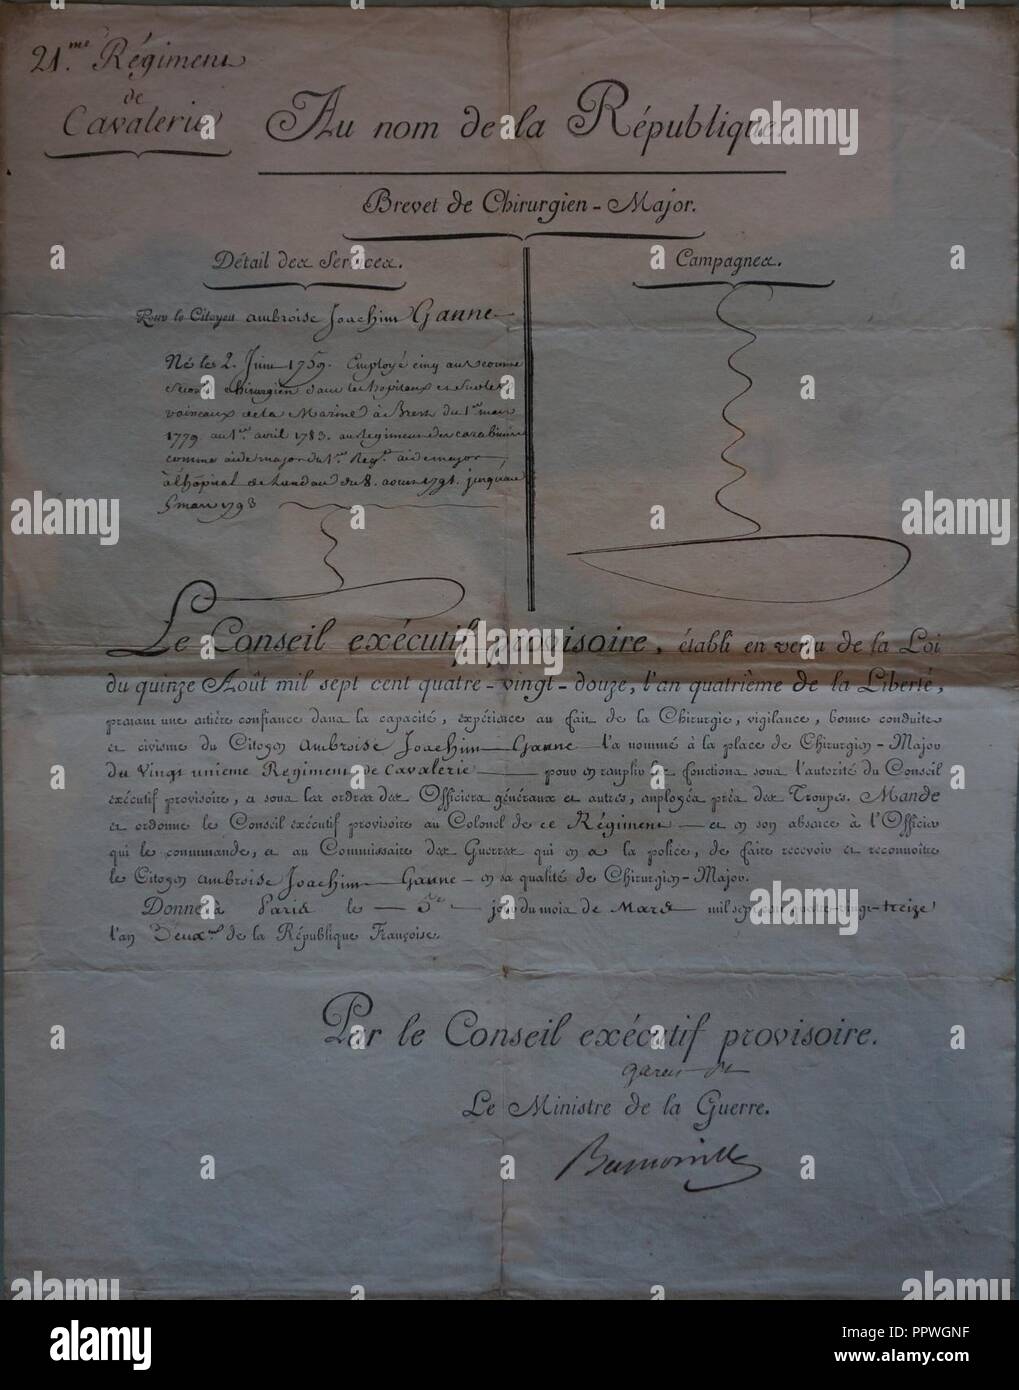 21.me Régiment
de
Cavalerie
Au nom de la République.
Brevet de Chirurgien-Major.
Détail des Services.
Campagnes.
Pour le Citoyen Ambroise Joachim Ganne
Né le 2. Juin 1759. Employé cinq ans comme
second Chirurgien dans les hopitaux et sur les
vaisseaux de la Marine à Brest du 1.er mars
1779 au 1.er avril 1783. au Regiment des carabiniers
comme aide major du 1.er Reg.t aide major
à l'hôpital de Landau du 8. aoust 1791. jusqu'au
5 mars 1793
Le Conseil exécutif provisoire, établi en vertu de la Loi
du quinze Août mil sept cent quatre-vingt-douze, l'an quatrième de la Liberté,
prenant une entière confiance dans la capacité, expérience au fait de la Chirurgie, vigilance, bonne conduite
et civisme du Citoyen Ambroise Joachim Ganne l'a nommé à la place de Chirurgien-Major
du vingt unieme Regiment de Cavalerie pour en remplir les fonctions sous l'autorité du Conseil
exécutif provisoire, et sous les ordres des Officiers généraux et autres, employés près des Troupes. Mande
et ordonne le Conseil exécutif provisoire au Colonel de ce Régiment et en son absence à l'Officier
qui le commande, et au Commissaire des Guerres qui en a la police, de faire recevoir et reconnoître
le Citoyen Ambroise Joachim Ganne en sa qualité de Chirurgien-Major.
Donné à Paris le 5.e jour du mois de Mars mil sept cent quatre-vingt-treize
l'an Deux.me de la République Française.
Par le Conseil exécutif provisoire.
Le Ministre de la Guerre.
Beurnonville
alamy
Image ID: PPWGNF
www.alamy.com